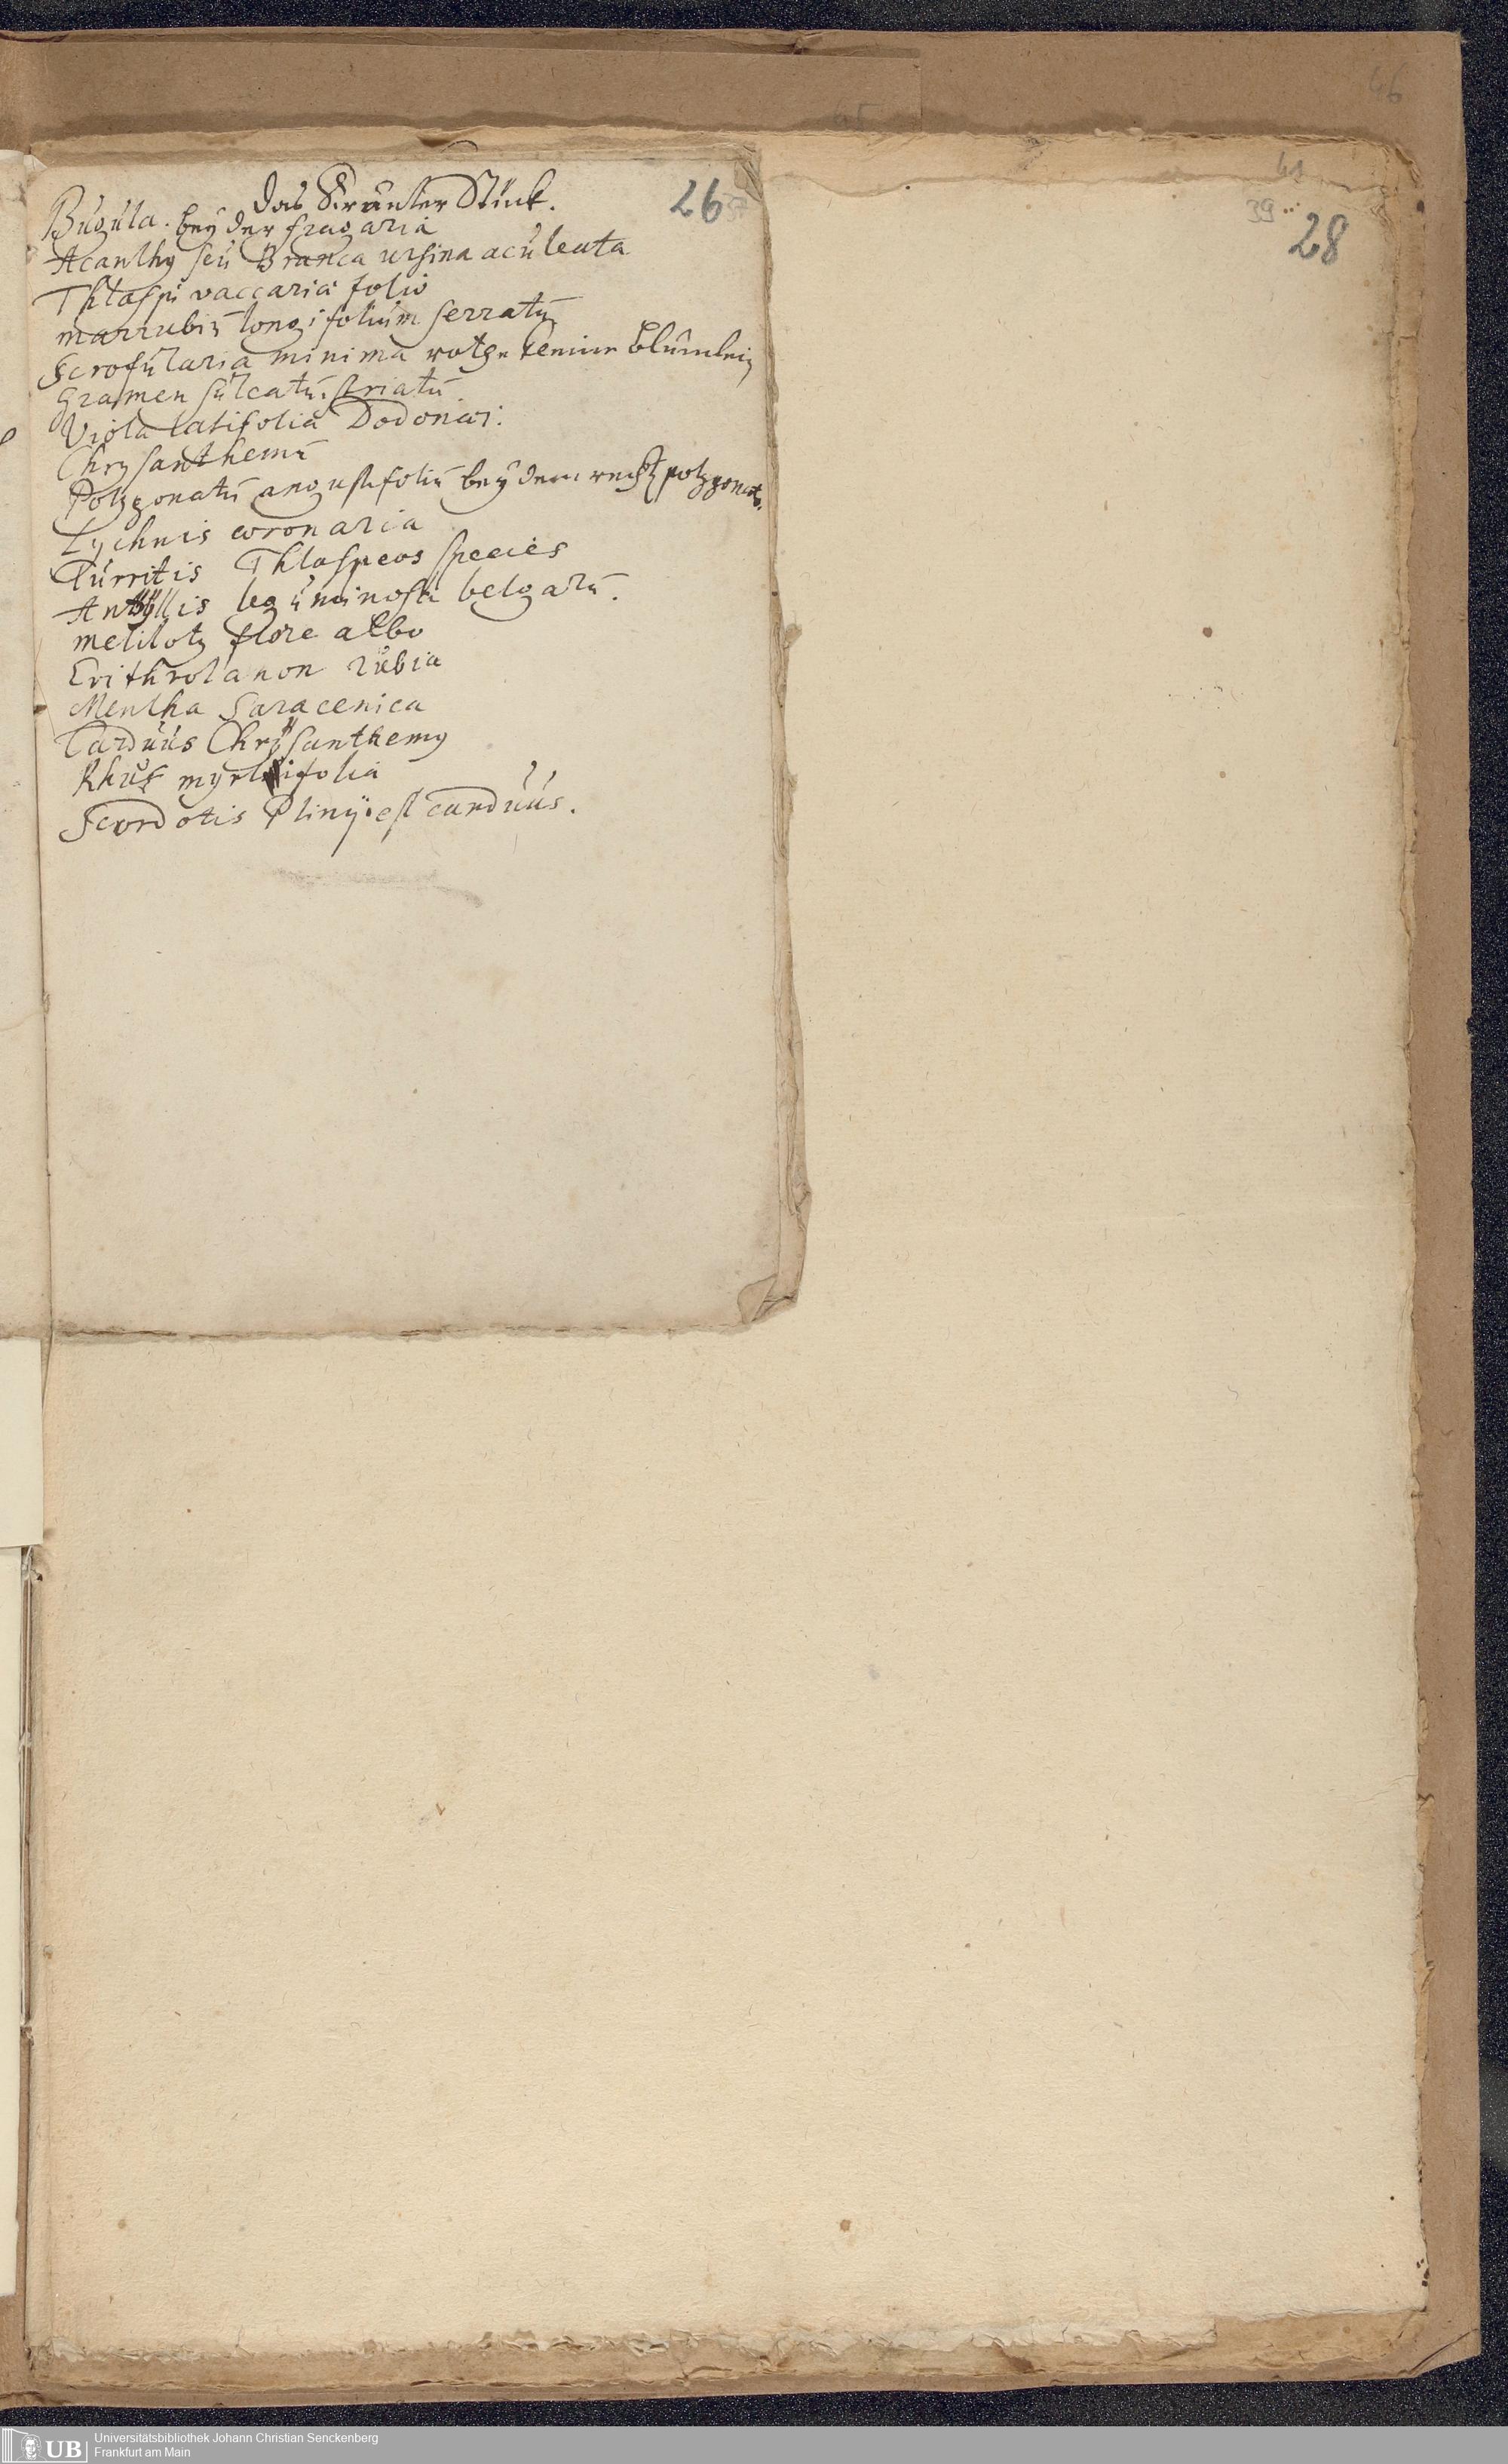 46
45
41
39
28
26 37
das Kräuter Stück.
Bugula. bey der fragaria
Acanthꝰ seu Branca ursina aculeata
Thlaspi vaccariæ folio
marrubiū longifolium serratū
Scrofularia minima rothe kleine blümlein
Gramen sulcatū. striatū
Viola latifolia Dodonæi.
Chrysanthemū
Polygonatū angustifoliū bey dem recht polygonato.
Lychnis coronaria
Turritis Thlaspeos species
Anthyllis leguminosa belgarū.
melilotꝰ flore albo
Erithrodanon rubia
Mentha Saracenica
Carduus Chrysanthemꝰ
Rhus myrtifolia
Scordotis Plinÿ. est carduus.
UB
Universitätsbibliothek Johann Christian Senckenberg
Frankfurt am Main